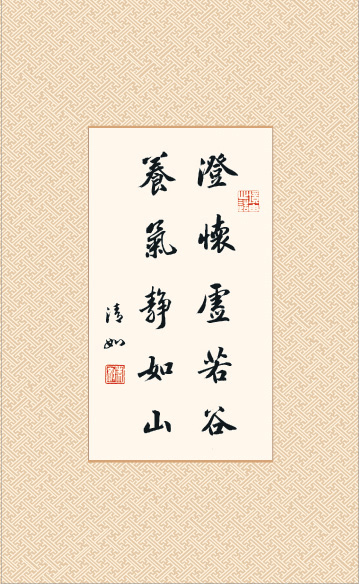 澄懷虛若谷
養氣静如山
清如